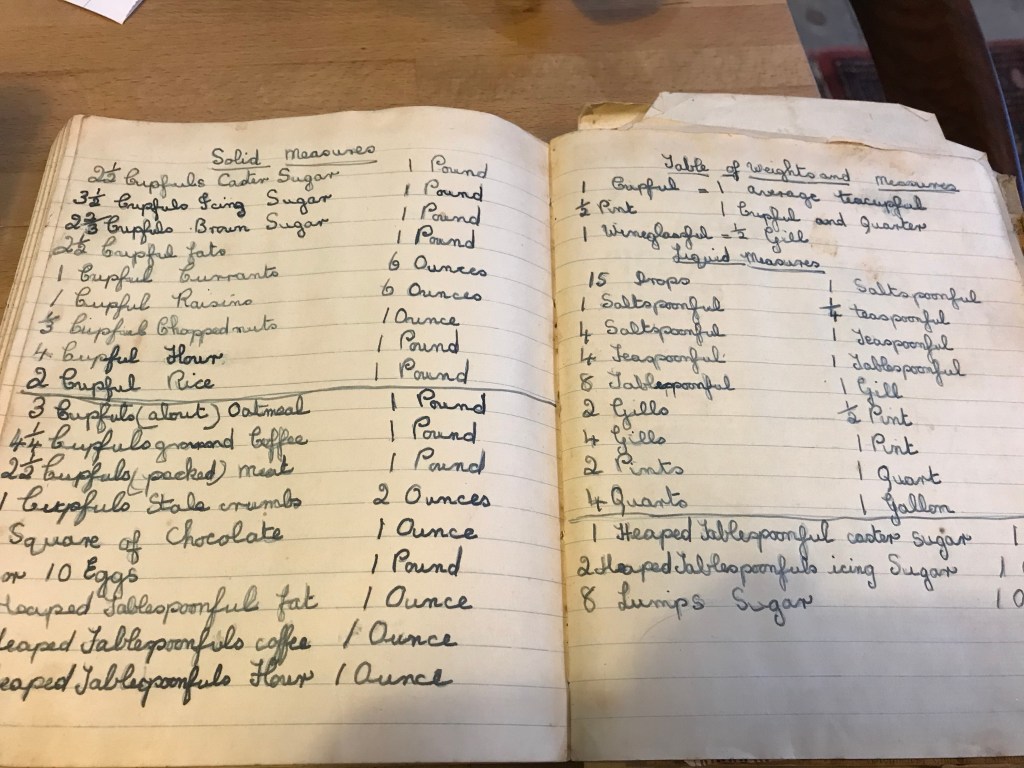 Solid Measures
2½ Cupfuls Caster Sugar 1 Pound
3½ Cupfuls Icing Sugar 1 Pound
2⅔ Cupfuls Brown Sugar 1 Pound
2½ Cupful fats 1 Pound
1 Cupful Currants 6 Ounces
1 Cupful Raisins 6 Ounces
⅓ Cupful Chopped nuts 1 Ounce
4 Cupful Flour 1 Pound
2 Cupful Rice 1 Pound
3 Cupfuls (about) Oatmeal 1 Pound
4¼ Cupfuls ground Coffee 1 Pound
2½ Cupfuls (packed) meat 1 Pound
1 Cupfuls Stale crumbs 2 Ounces
Square of Chocolate 1 Ounce
or 10 Eggs 1 Pound
Heaped Tablespoonful fat 1 Ounce
eaped Tablespoonfuls coffee 1 Ounce
eaped Tablespoonfuls Flour 1 Ounce
Table of Weights and Measures
1 Cupful = 1 average teacupful
½ Pint 1 Cupful and Quarter
1 Wineglassful = ½ Gill
Liquid Measures
15 Drops 1 Saltspoonful
1 Saltspoonful ¼ teaspoonful
4 Saltspoonful 1 Teaspoonful
4 Teaspoonful 1 Tablespoonful
8 Tablespoonful 1 Gill
2 Gills ½ Pint
4 Gills 1 Pint
2 Pints 1 Quart
4 Quarts 1 Gallon
1 Heaped Tablespoonful caster sugar 1
2 Heaped Tablespoonfuls icing Sugar 1
8 Lumps Sugar 1 O